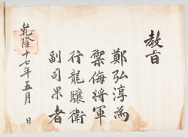 教旨
鄭弘淳為
禦侮將軍
行龍驤衛
副司果者
乾隆十七年五月 日